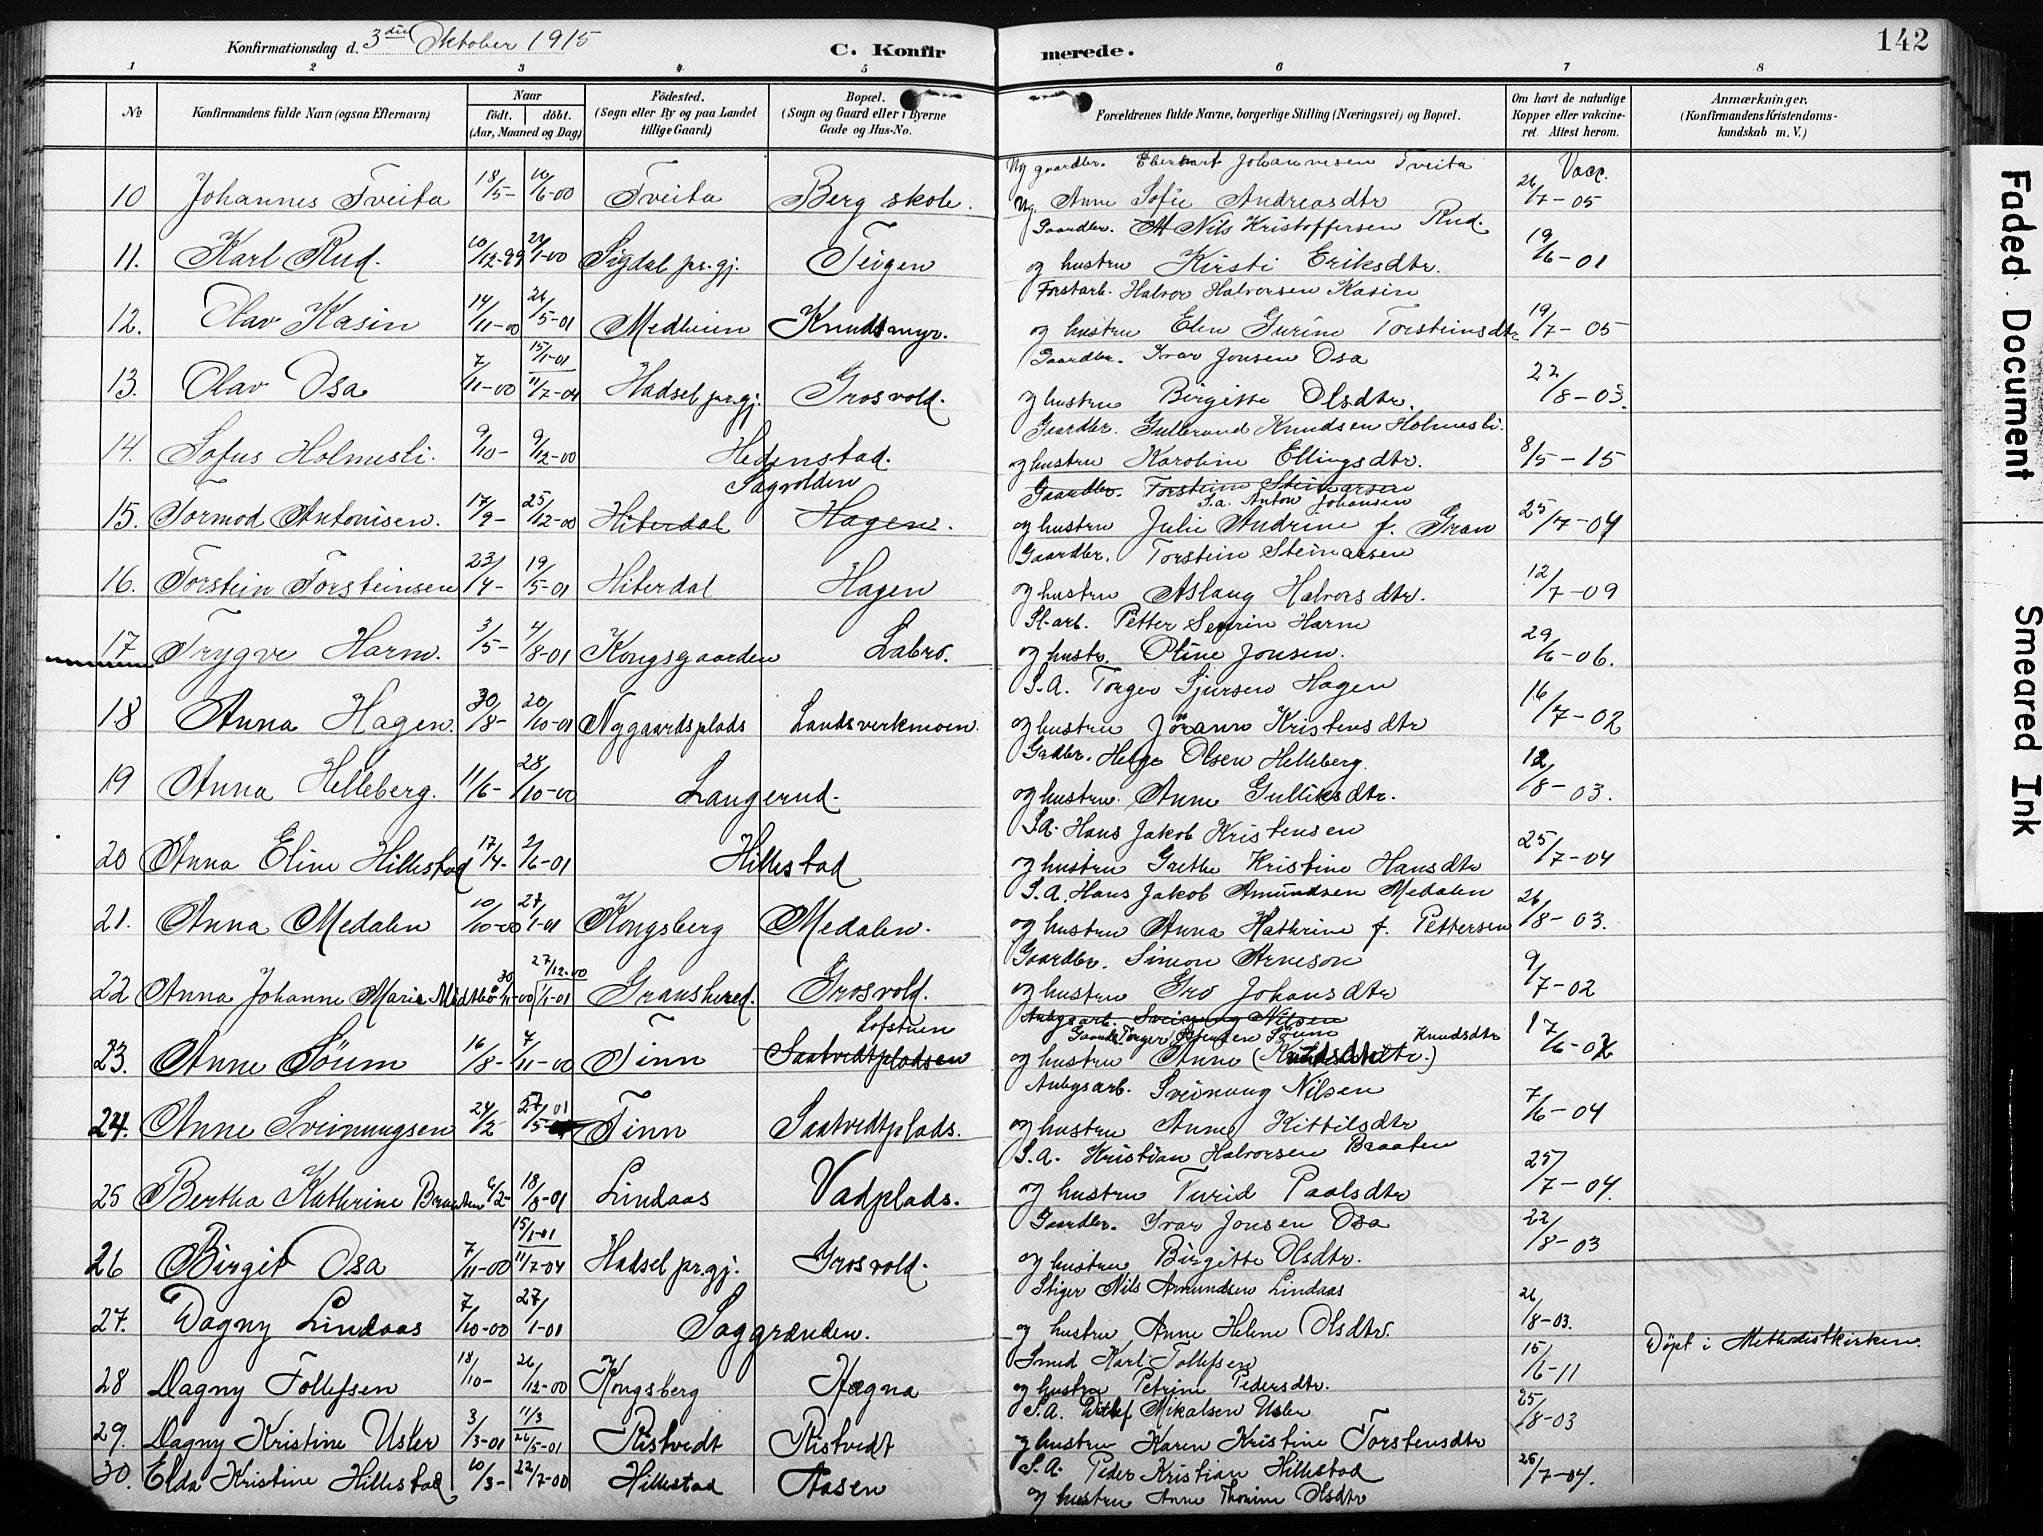 142
Konfirmationsdag d. 3die Oktober 1915
C. Konfirmerede.
1 2 3 4 5 6 7 8
No
Konfirmandens fulde Navn (ogsaa Efternavn)
Naar
født. døbt.
(Aar, Maaned og Dag)
Fødested.
(Sogn eller By og paa Landet
tillige Gaard)
Bopæl.
(Sogn og Gaard eller i Byerne
Gade og Hus-No.
Forældrenes fulde Navne, borgerlige Stilling (Næringsvei) og Bopæl.
Om havt de naturlige
Kopper eller vakcine-
ret. Attest herom.
Anmærkninger.
(Konfirmandens Kristendoms-
kundskab m. V.)
Vacc.
gaardbr. Johannesen Tveita
10 Johannes Tveita 18/5- 10/6-00 Tveita Berg skole. Anne Sofie Andreasdtr 26/7-05
Gaardbr. Nils Kristoffersen Rud.
11. Karl Rud. 10/12-99 24/1-00 Sigdal pr.gj. Teigen og hustru Kirsti Eriksdtr. 19/6-01
Forstarb. Halvor Halvorsen Kasin
12. Olav Kasin 14/11-00 26/5-01 Medheien Knudsmyr. og hustru Elen Gurine Torsteinsdtr 19/7-05
Gaardbr. Ivar Jonsen Osa
15/1-01
13. Olav Osa 7/11-00 11/7-04 Hadsel pr.gj. Grosvold. og hustru Birgitte Olsdtr. 22/8-03.
Gaardbr. Gulbrand Knudsen Holmesli.
14. Sofus Holmesli. 9/10- 9/12-00 Hedenstad. og hustru Karoline Ellingsdtr. 8/5-15
Sagvolden
Gaardbr. Torstein Steinarsen
S.a. Anton Johansen
15. Tormod Antonisen. 17/9- 25/12-00 Hiterdal Hagen. og hustru Julie Andrine f. Gran 25/7-04
Gaardbr. Torstein Steinarsen
16. Torstein Torsteinsen 23/4- 19/5-01 Hiterdal Hagen og hustru Aslaug Halvorsdtr. 12/7-09
Sl-arb. Petter Severin Harm
17 Trygve Harm. 3/5- 4/8-01 Kongsgaarden Labro. og hustr. Oline Jonsen. 29/6-06.
S.A. Torger Sjursen Hagen
18 Anna Hagen. 30/8- 20/10-01 Nygaardsplads Landsverkmoen. og hustru Jörann Kristensdtr 16/7-02
Gadbr. Helge Olsen Helleberg.
19 Anna Helleberg. 11/6- 28/10-00 Langerud. og hustru. Anne Gulliksdtr. 12/8-03.
S.A. Hans Jakob Kristensen
20 Anna Eline Hillestad 17/4- 2/6-01 Hillestad og hustru Grethe Kristine Hansdtr 25/7-04
S.A. Hans Jakob Amundsen Medalen
21. Anna Medalen 10/10-00 27/1-01 Kongsberg Medalen. og hustru Anna Kathrine f. Pettersen 26/8-03.
Gaardbr. Simon Arneson
27/12-00
22 Anna Johanne Marie 30/11-00 /1-01 Gransherred. Grosvold. og hustru Gro Johansdtr 9/7-02
Lofstuen
Anlgsarb. Sveinung Nilsen
Söum Knudsdtr
23. Anne Söum 16/8- 7/11-00 Tinn Saatvedtpladsen og hustru Anne 17/6-02
Anlgsarb. Sveinung Nilsen
24. Anne Sveinungsen 24/2 27/5-01 Tinn Saatvedtplads. og hustru Anne Kittilsdtr 7/6-04
S.A. Kristian Halvorsen Braaten
25 Bertha Kathrine Braaten 6/2- 18/8-01 Lindaas Vadplads. og hustru Turid Paalsdtr 25/7-04.
Gaardbr. Ivar Jonsen Osa
15/1-01
26 Birgit Osa 7/11-00 11/7-04 Hadsel pr.gj. Grosvold. og hustru Birgitte Olsdtr. 22/8-03
Stiger Nils Amundsen Lindaas
27. Dagny Lindaas 7/10-00 27/1-01 Saggrenden. og hustru Anne Helene Olsdtr. 26/8-03.
Smed Karl Tollefsen Döpt i Methodistkirken.
28 Dagny Tollefsen 18/10- 26/12-00 Kongsberg Hegna og hustru Petrine Pedersdtr. 15/6-11
S.A. Ditlef Mikalsen Usler
11/3
29. Dagny Kristine Usler 3/3-01 26/5-01 Ristvedt Ristvedt og hustru Karen Kristine Torstensdtr 25/8-03
S.A. Peder Kristian Hillestad
30. Elda Kristine Hillestad 10/3- 22/7-00 Hillestad Aasen og hustru Anne Thomine Olsdtr 25/7-04.
Faded Document
Smeared Ink